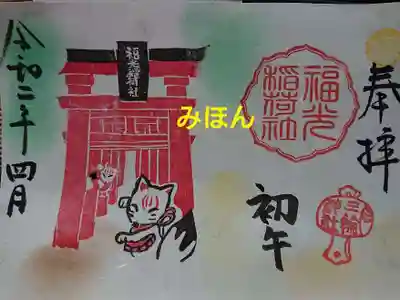 奉拝
福光
稲荷社
初午
みほん
福光稲荷社
令和二年四月